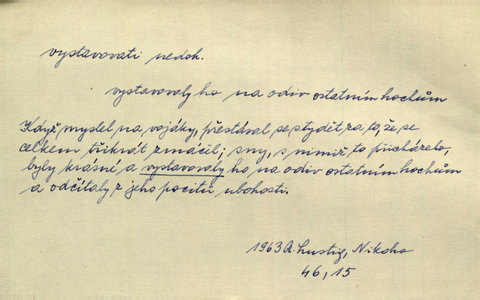 vystavovati nedok.
vystavovaly ho na odiv ostatním hochům
Když myslel na vojáky, přestával se stydět za to, že se
celkem třikrát zmáčil; sny, s nimiž to přicházelo,
byly krásné a vystavovaly ho na odiv ostatním hochům
a odčítaly z jeho pocitů ubohosti.
1963 A. Lustig, Nikoho
46, 15